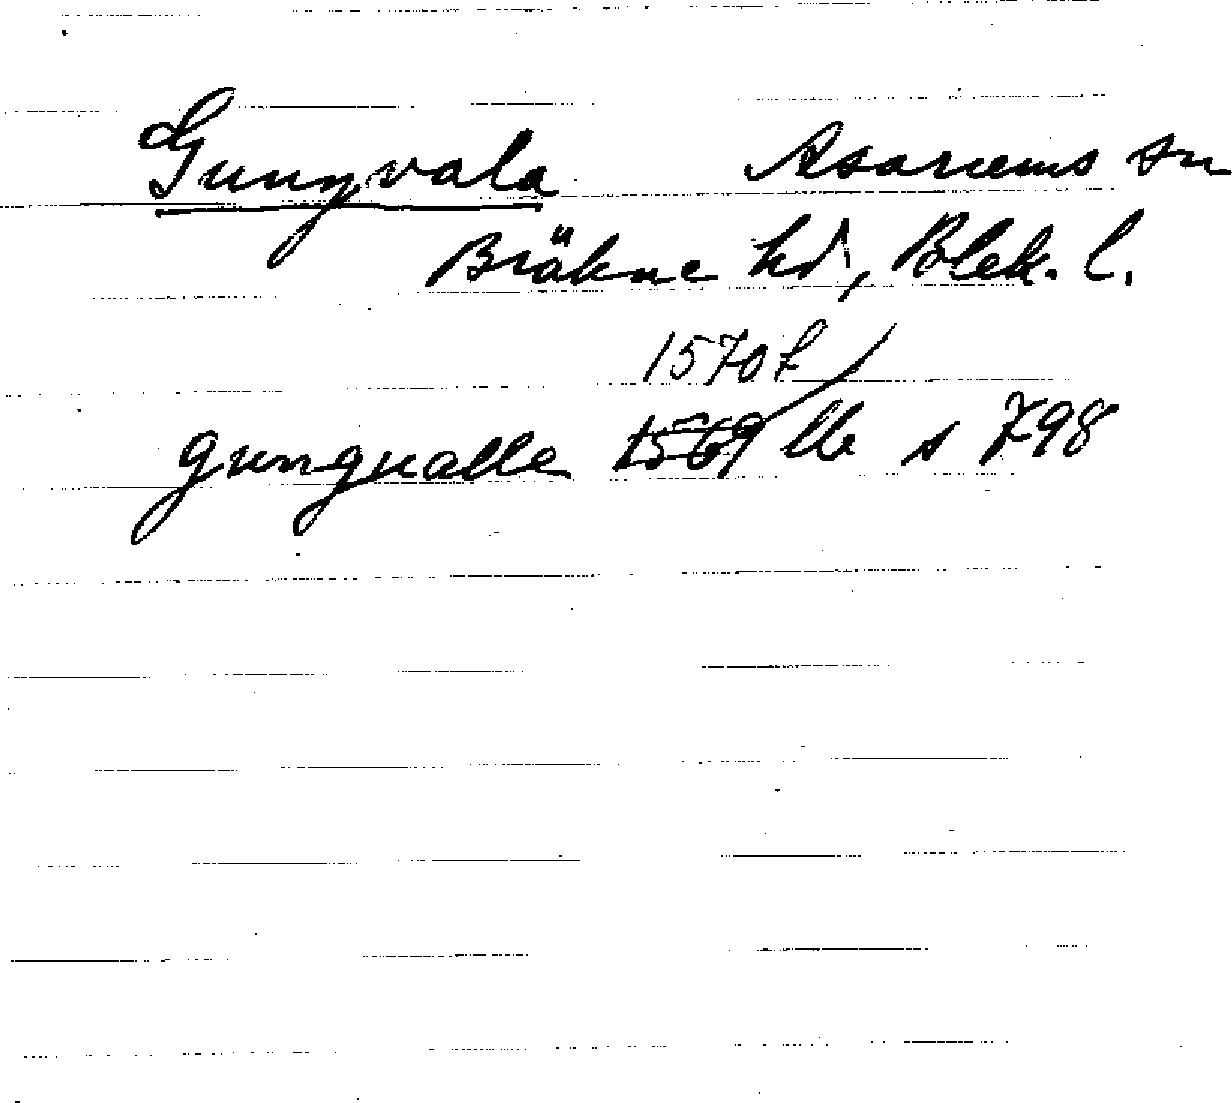 Gungvala Asarums sn
Bräkne hd, Blek. l.
1570 f
gungualle 1569 lb s 798